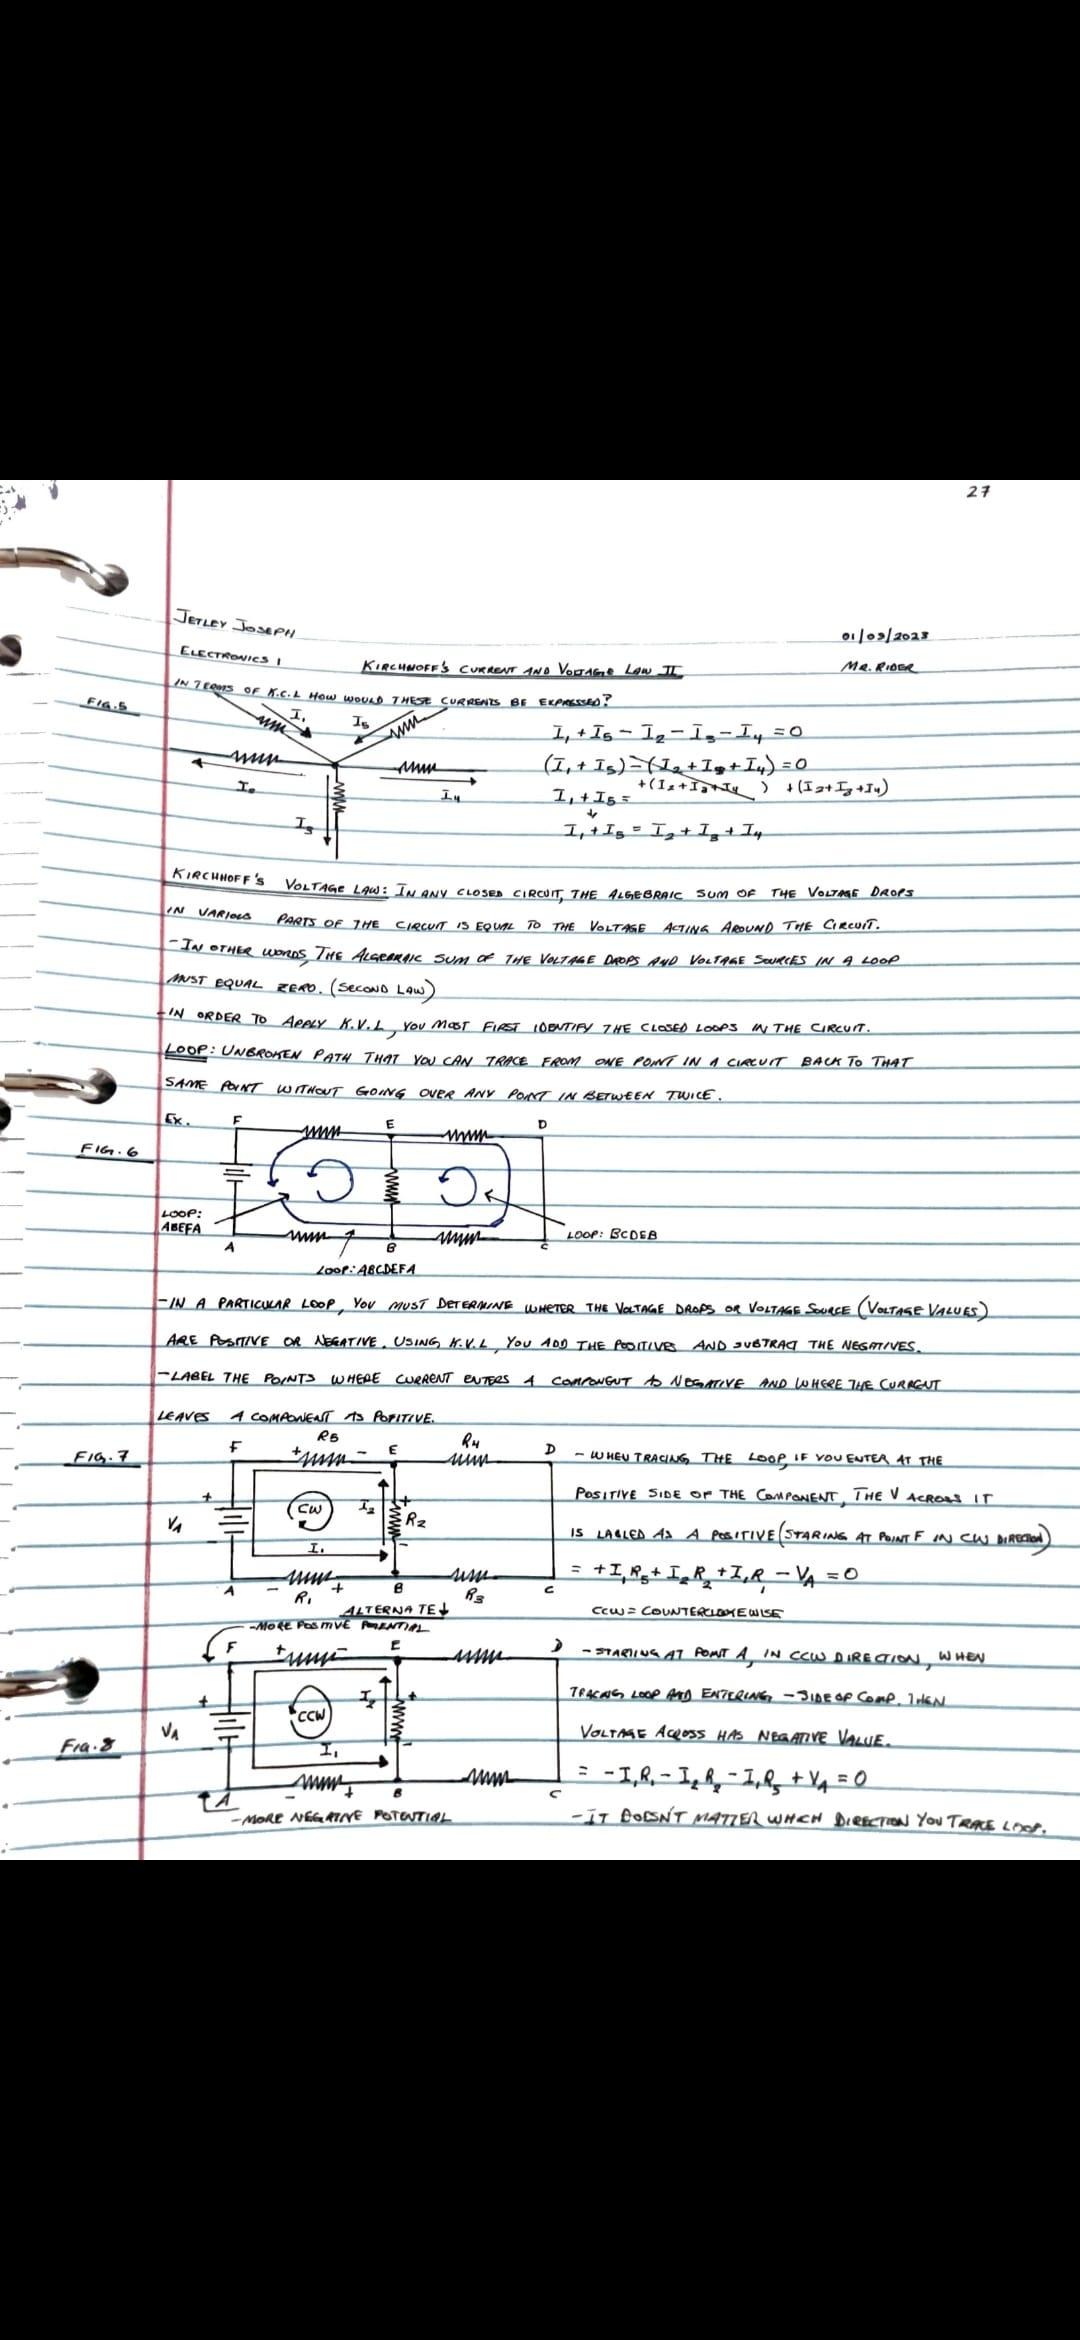 27
JETLEY JOSEPH
01/09/2023
ELECTRONICS 1
KIRCHHOFF'S CURRENT AND VOLTAGE LAW II
MR. RIDER
IN TERMS OF K.C.L HOW WOULD THESE CURRENTS BE EXPRESSED?
FIG.5
I₁ I5
I₁ + I5 - I2 - I3 - I4 = 0
(I₁ + I5) - (I2 + I3 + I4) = 0
+(I2+I3+I4 ) +(I2+I3+I4)
I₁ + I5 =
I4
I3
I₁ + I5 = I2 + I3 + I4
KIRCHHOFF'S VOLTAGE LAW: IN ANY CLOSED CIRCUIT, THE ALGEBRAIC SUM OF THE VOLTAGE DROPS
IN VARIOUS PARTS OF THE CIRCUIT IS EQUAL TO THE VOLTAGE ACTING AROUND THE CIRCUIT.
-IN OTHER WORDS, THE ALGEBRAIC SUM OF THE VOLTAGE DROPS AND VOLTAGE SOURCES IN A LOOP
MUST EQUAL ZERO. (SECOND LAW)
-IN ORDER TO APPLY K.V.L, YOU MUST FIRST IDENTIFY THE CLOSED LOOPS IN THE CIRCUIT.
LOOP: UNBROKEN PATH THAT YOU CAN TRACE FROM ONE POINT IN A CIRCUIT BACK TO THAT
SAME POINT WITHOUT GOING OVER ANY POINT IN BETWEEN TWICE.
EX.
F E D
FIG.6
LOOP:
ABEFA
LOOP: BCDEB
A B C
LOOP: ABCDEFA
-IN A PARTICULAR LOOP, YOU MUST DETERMINE WHETER THE VOLTAGE DROPS OR VOLTAGE SOURCE (VOLTAGE VALUES)
ARE POSITIVE OR NEGATIVE. USING K.V.L, YOU ADD THE POSITIVES AND SUBTRACT THE NEGATIVES.
-LABEL THE POINTS WHERE CURRENT ENTERS A COMPONENT AS NEGATIVE AND WHERE THE CURRENT
LEAVES A COMPONENT AS POSITIVE.
FIG.7
F + R5 - E R4 D
- WHEN TRACING THE LOOP, IF YOU ENTER AT THE
POSITIVE SIDE OF THE COMPONENT, THE V ACROSS IT
IS LABLED AS A POSITIVE (STARING AT POINT F IN CW DIRECTION)
= +I₁R5 + I2R2 + I₁R₁ - VA = 0
+ VA CW I2 + R2 -
I₁
A - R₁ + B R3 C
CCW = COUNTERCLOCKEWISE
ALTERNATE↓
-MORE POSITIVE POTENTIAL
F + - E D
-STARTING AT POINT A, IN CCW DIRECTION, WHEN
TRACING LOOP AND ENTERING - SIDE OF COMP. THEN
VOLTAGE ACROSS HAS NEGATIVE VALUE.
= -I₁R₁ - I2R2 - I₁R5 + VA = 0
FIG.8
+ VA CCW I2 +
I₁
A - + B C
-MORE NEGATIVE POTENTIAL
-IT DOESN'T MATTER WHICH DIRECTION YOU TRACE LOOP.